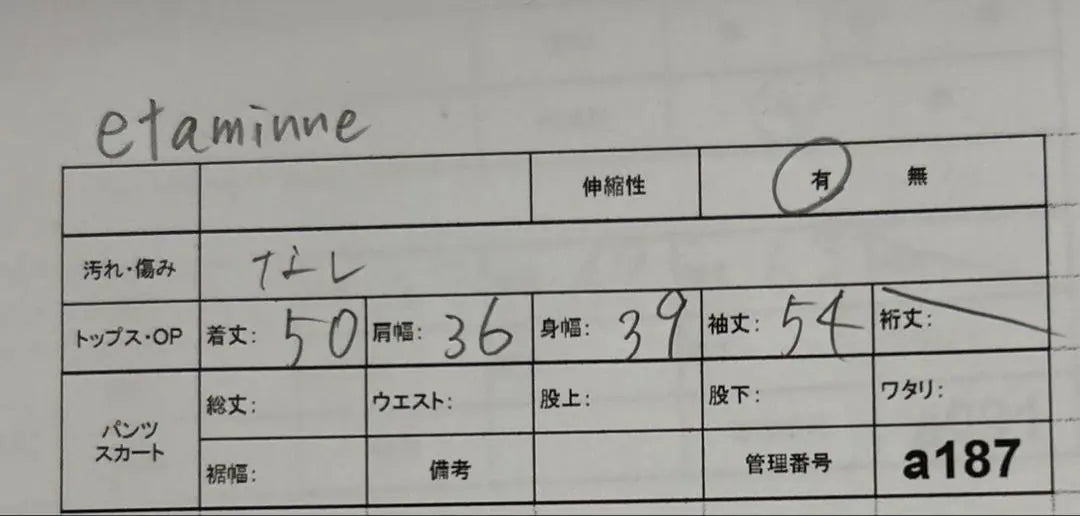 etaminne
伸縮性 有 無
汚れ・傷み なし
トップス・OP 着丈: 50 肩幅: 36 身幅: 39 袖丈: 54 裄丈:
パンツ スカート
総丈: ウエスト: 股上: 股下: ワタリ:
裾幅: 備考 管理番号 a187